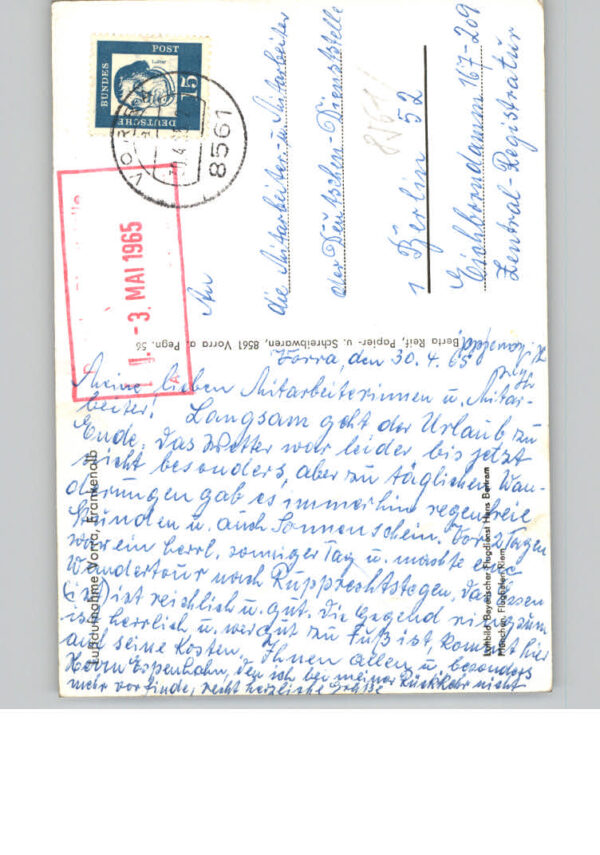 DEUTSCHE
BUNDES
POST
15
Luther
VORRA
30.4.
8561
- 3. MAI 1965
A
An
die Mitarbeiter- u. Mitarbeiter
der Deutschen-Dienststelle
1 Berlin 52
Eichborndamm 167-209
Zentral-Registratur
8561
Berta Reif, Papier- u. Schreibwaren, 8561 Vorra a. Pegn. 56
Vorra, den 30.4.65
Meine lieben Mitarbeiterinnen u. Mitar-
beiter! Langsam geht der Urlaub zu
Ende. Das Wetter war leider bis jetzt
nicht besonders, aber zu täglichen Wan-
derungen gab es immerhin regenfreie
Stunden u. auch Sonnenschein. Vor 2 Tagen
war ein herrl. sonniger Tag u. machte eine
Wandertour nach Rupprechtstegen, das Essen
(ist) ist reichlich u. gut. Die Gegend ringsum
ist herrlich u. wer gut zu Fuß ist, kommt hier
auf seine Kosten. Ihnen allen u. besonders
Herrn Espenhahn, den ich bei meiner Rückkehr nicht
mehr vorfinde, recht herzliche Grüße
Luftaufnahme Vorra, Frankenalb
Luftbild Bayerischer Flugdienst Hans Bertram
München Flughafen Riem